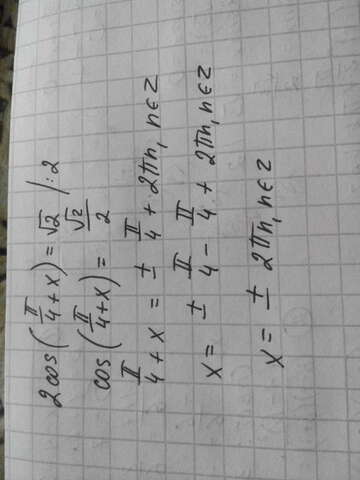 2cos(π/4 + x) = √2 / : 2
cos(π/4 + x) = √2/2
π/4 + x = ± π/4 + 2πn, n∈Z
x = ± π/4 - π/4 + 2πn, n∈Z
x = ± 2πn, n∈Z